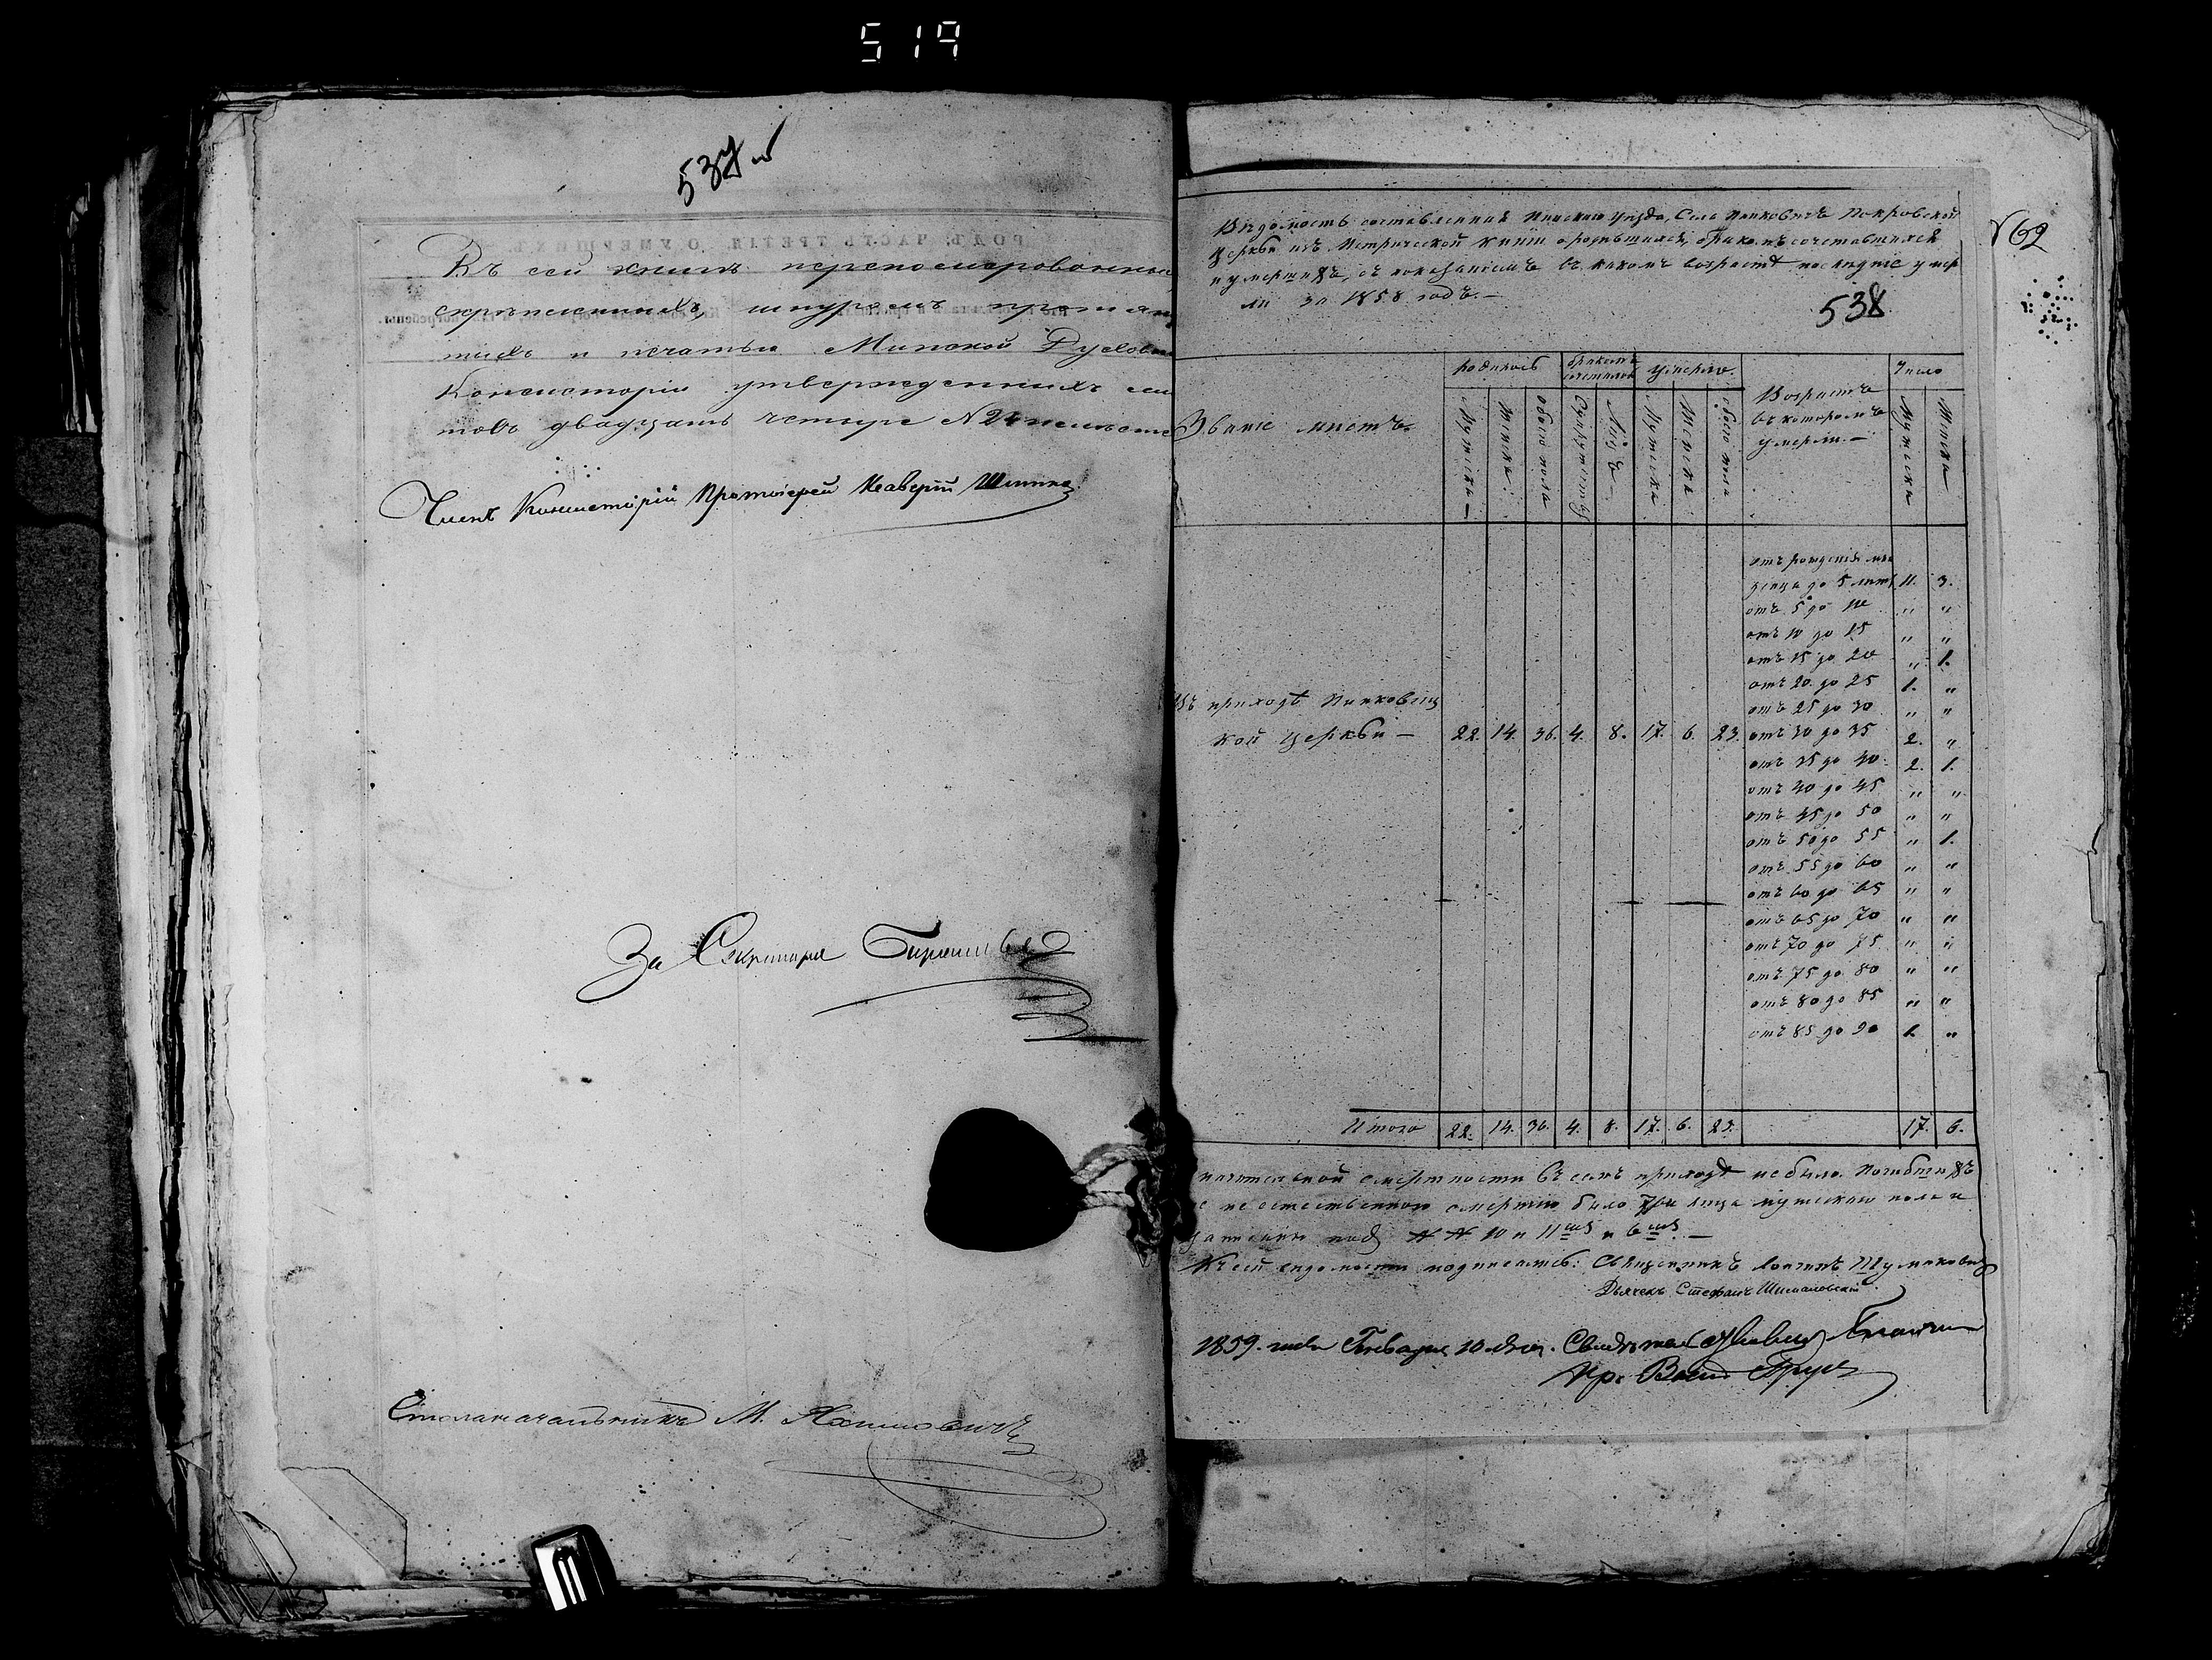 519
537 об
Въ сей книгѣ перенумерованныхъ
скрѣпленныхъ, шнуромъ протяну
тыхъ и печатью Минской Духовно
Консисторіи утвержденныхъ лис
товъ двадцать четыре N 24
Членъ Консисторіи Протоіерей
За Секретаря
Столоначальникъ М.
69
Вѣдомость составленная Пинскаго уѣзда, Села Пинковичъ Покровской
Церкви изъ Метрической книги о родившихся, бракомъ сочетавшихся
и умершихъ, съ показаніемъ въ какомъ возрастѣ послѣдніе умер
ли за 1858 годъ.—
538
Званіе мѣстъ.
Родилось
бракомъ сочеталось
Умерло.
Возрастъ въ которомъ умерли.—
Число
Мужеска
Женска
обоего пола
Супружествъ
Лицъ
Мужеска
Женска
обоего пола
Мужеска
Женска
отъ рожденія мла
денца до 5 лѣтъ 11. 3.
отъ 5 до 10 " "
отъ 10 до 15 " "
отъ 15 до 20 " 1.
отъ 20 до 25 1. "
отъ 25 до 30 " "
Въ приходѣ Пинковиц
кой церкви — 22. 14. 36. 4. 8. 17. 6. 23. отъ 30 до 35 2. "
отъ 35 до 40 2. 1.
отъ 40 до 45 " "
отъ 45 до 50 " "
отъ 50 до 55 " 1.
отъ 55 до 60 " "
отъ 60 до 65 " "
отъ 65 до 70 " "
отъ 70 до 75 " "
отъ 75 до 80 " "
отъ 80 до 85 " "
отъ 85 до 90 1. "
Итого 22. 14. 36. 4. 8. 17. 6. 23. 17. 6.
смертности въ семъ приходѣ не было. Погибшихъ
не естественною смертію было три лица мужескаго пола и
записаны подъ NN 10 и 11 и 6
Къ сей вѣдомости подписались: Священникъ
Дьячекъ Стефанъ Шимановскій
1859. года Генваря 10 дня.